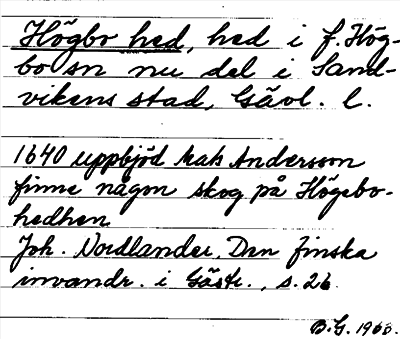 Högbo hed, hed i f. Hög-
bo sn nu del i Sand-
vikens stad, Gävl. l.
1640 uppbjöd Mats Andersson
finne någon skog på Högebo-
hedhen
Joh. Nordlander, Den finska
invandr. i Gästr., s. 26
B.G. 1960.